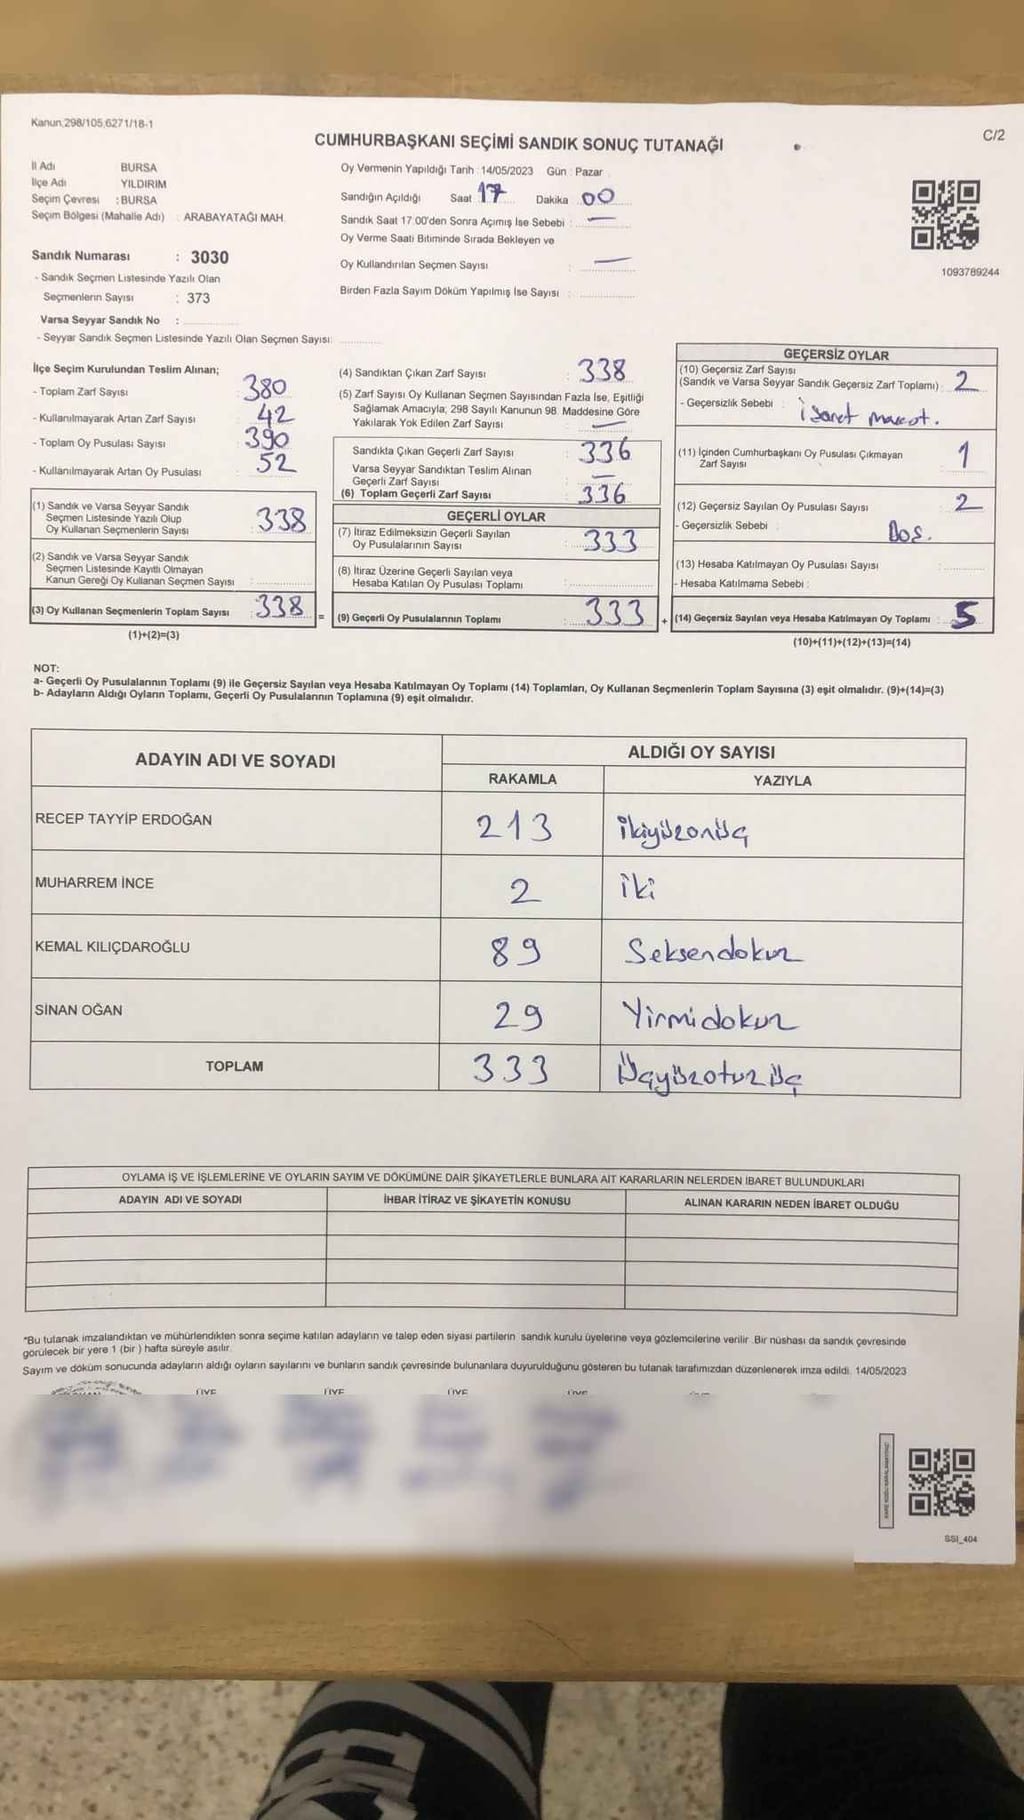 Kanun,298/105,6271/18-1
C/2
CUMHURBAŞKANI SEÇİMİ SANDIK SONUÇ TUTANAĞI
İl Adı BURSA
İlçe Adı YILDIRIM
Seçim Çevresi : BURSA
Seçim Bölgesi (Mahalle Adı) : ARABAYATAĞI MAH.
Oy Vermenin Yapıldığı Tarih : 14/05/2023 Gün : Pazar
Sandığın Açıldığı Saat 17 Dakika 00
Sandık Saat 17:00'den Sonra Açımış İse Sebebi : —
Oy Verme Saati Bitiminde Sırada Bekleyen ve
Oy Kullandırılan Seçmen Sayısı : —
Birden Fazla Sayım Döküm Yapılmış İse Sayısı :
1093789244
Sandık Numarası : 3030
- Sandık Seçmen Listesinde Yazılı Olan
Seçmenlerin Sayısı : 373
Varsa Seyyar Sandık No :
- Seyyar Sandık Seçmen Listesinde Yazılı Olan Seçmen Sayısı:
İlçe Seçim Kurulundan Teslim Alınan;
- Toplam Zarf Sayısı 380
- Kullanılmayarak Artan Zarf Sayısı 42
- Toplam Oy Pusulası Sayısı 390
- Kullanılmayarak Artan Oy Pusulası 52
(1) Sandık ve Varsa Seyyar Sandık
Seçmen Listesinde Yazılı Olup
Oy Kullanan Seçmenlerin Sayısı 338
(2) Sandık ve Varsa Seyyar Sandık
Seçmen Listesinde Kayıtlı Olmayan
Kanun Gereği Oy Kullanan Seçmen Sayısı :
(3) Oy Kullanan Seçmenlerin Toplam Sayısı : 338 =
(1)+(2)=(3)
(4) Sandıktan Çıkan Zarf Sayısı : 338
(5) Zarf Sayısı Oy Kullanan Seçmen Sayısından Fazla İse, Eşitliği
Sağlamak Amacıyla; 298 Sayılı Kanunun 98. Maddesine Göre
Yakılarak Yok Edilen Zarf Sayısı : —
Sandıkta Çıkan Geçerli Zarf Sayısı : 336
Varsa Seyyar Sandıktan Teslim Alınan
Geçerli Zarf Sayısı : —
(6) Toplam Geçerli Zarf Sayısı : 336
GEÇERLİ OYLAR
(7) İtiraz Edilmeksizin Geçerli Sayılan
Oy Pusulalarının Sayısı : 333
(8) İtiraz Üzerine Geçerli Sayılan veya
Hesaba Katılan Oy Pusulası Toplamı :
(9) Geçerli Oy Pusulalarının Toplamı : 333 +
GEÇERSİZ OYLAR
(10) Geçersiz Zarf Sayısı
(Sandık ve Varsa Seyyar Sandık Geçersiz Zarf Toplamı) : 2
- Geçersizlik Sebebi : işaret
(11) İçinden Cumhurbaşkanı Oy Pusulası Çıkmayan
Zarf Sayısı : 1
(12) Geçersiz Sayılan Oy Pusulası Sayısı : 2
- Geçersizlik Sebebi : Boş.
(13) Hesaba Katılmayan Oy Pusulası Sayısı :
- Hesaba Katılmama Sebebi :
(14) Geçersiz Sayılan veya Hesaba Katılmayan Oy Toplamı : 5
(10)+(11)+(12)+(13)=(14)
NOT:
a- Geçerli Oy Pusulalarının Toplamı (9) ile Geçersiz Sayılan veya Hesaba Katılmayan Oy Toplamı (14) Toplamları, Oy Kullanan Seçmenlerin Toplam Sayısına (3) eşit olmalıdır. (9)+(14)=(3)
b- Adayların Aldığı Oyların Toplamı, Geçerli Oy Pusulalarının Toplamına (9) eşit olmalıdır.
ADAYIN ADI VE SOYADI
ALDIĞI OY SAYISI
RAKAMLA YAZIYLA
RECEP TAYYİP ERDOĞAN 213 ikiyüzonüç
MUHARREM İNCE 2 iki
KEMAL KILIÇDAROĞLU 89 Seksendokuz
SİNAN OĞAN 29 Yirmidokuz
TOPLAM 333 Üçyüzotuzüç
OYLAMA İŞ VE İŞLEMLERİNE VE OYLARIN SAYIM VE DÖKÜMÜNE DAİR ŞİKAYETLERLE BUNLARA AİT KARARLARIN NELERDEN İBARET BULUNDUKLARI
ADAYIN ADI VE SOYADI İHBAR İTİRAZ VE ŞİKAYETİN KONUSU ALINAN KARARIN NEDEN İBARET OLDUĞU
*Bu tutanak imzalandıktan ve mühürlendikten sonra seçime katılan adayların ve talep eden siyasi partilerin sandık kurulu üyelerine veya gözlemcilerine verilir. Bir nüshası da sandık çevresinde
görülecek bir yere 1 (bir ) hafta süreyle asılır.
Sayım ve döküm sonucunda adayların aldığı oyların sayılarını ve bunların sandık çevresinde bulunanlara duyurulduğunu gösteren bu tutanak tarafımızdan düzenlenerek imza edildi. 14/05/2023
ÜYE ÜYE ÜYE ÜYE
SSI_404